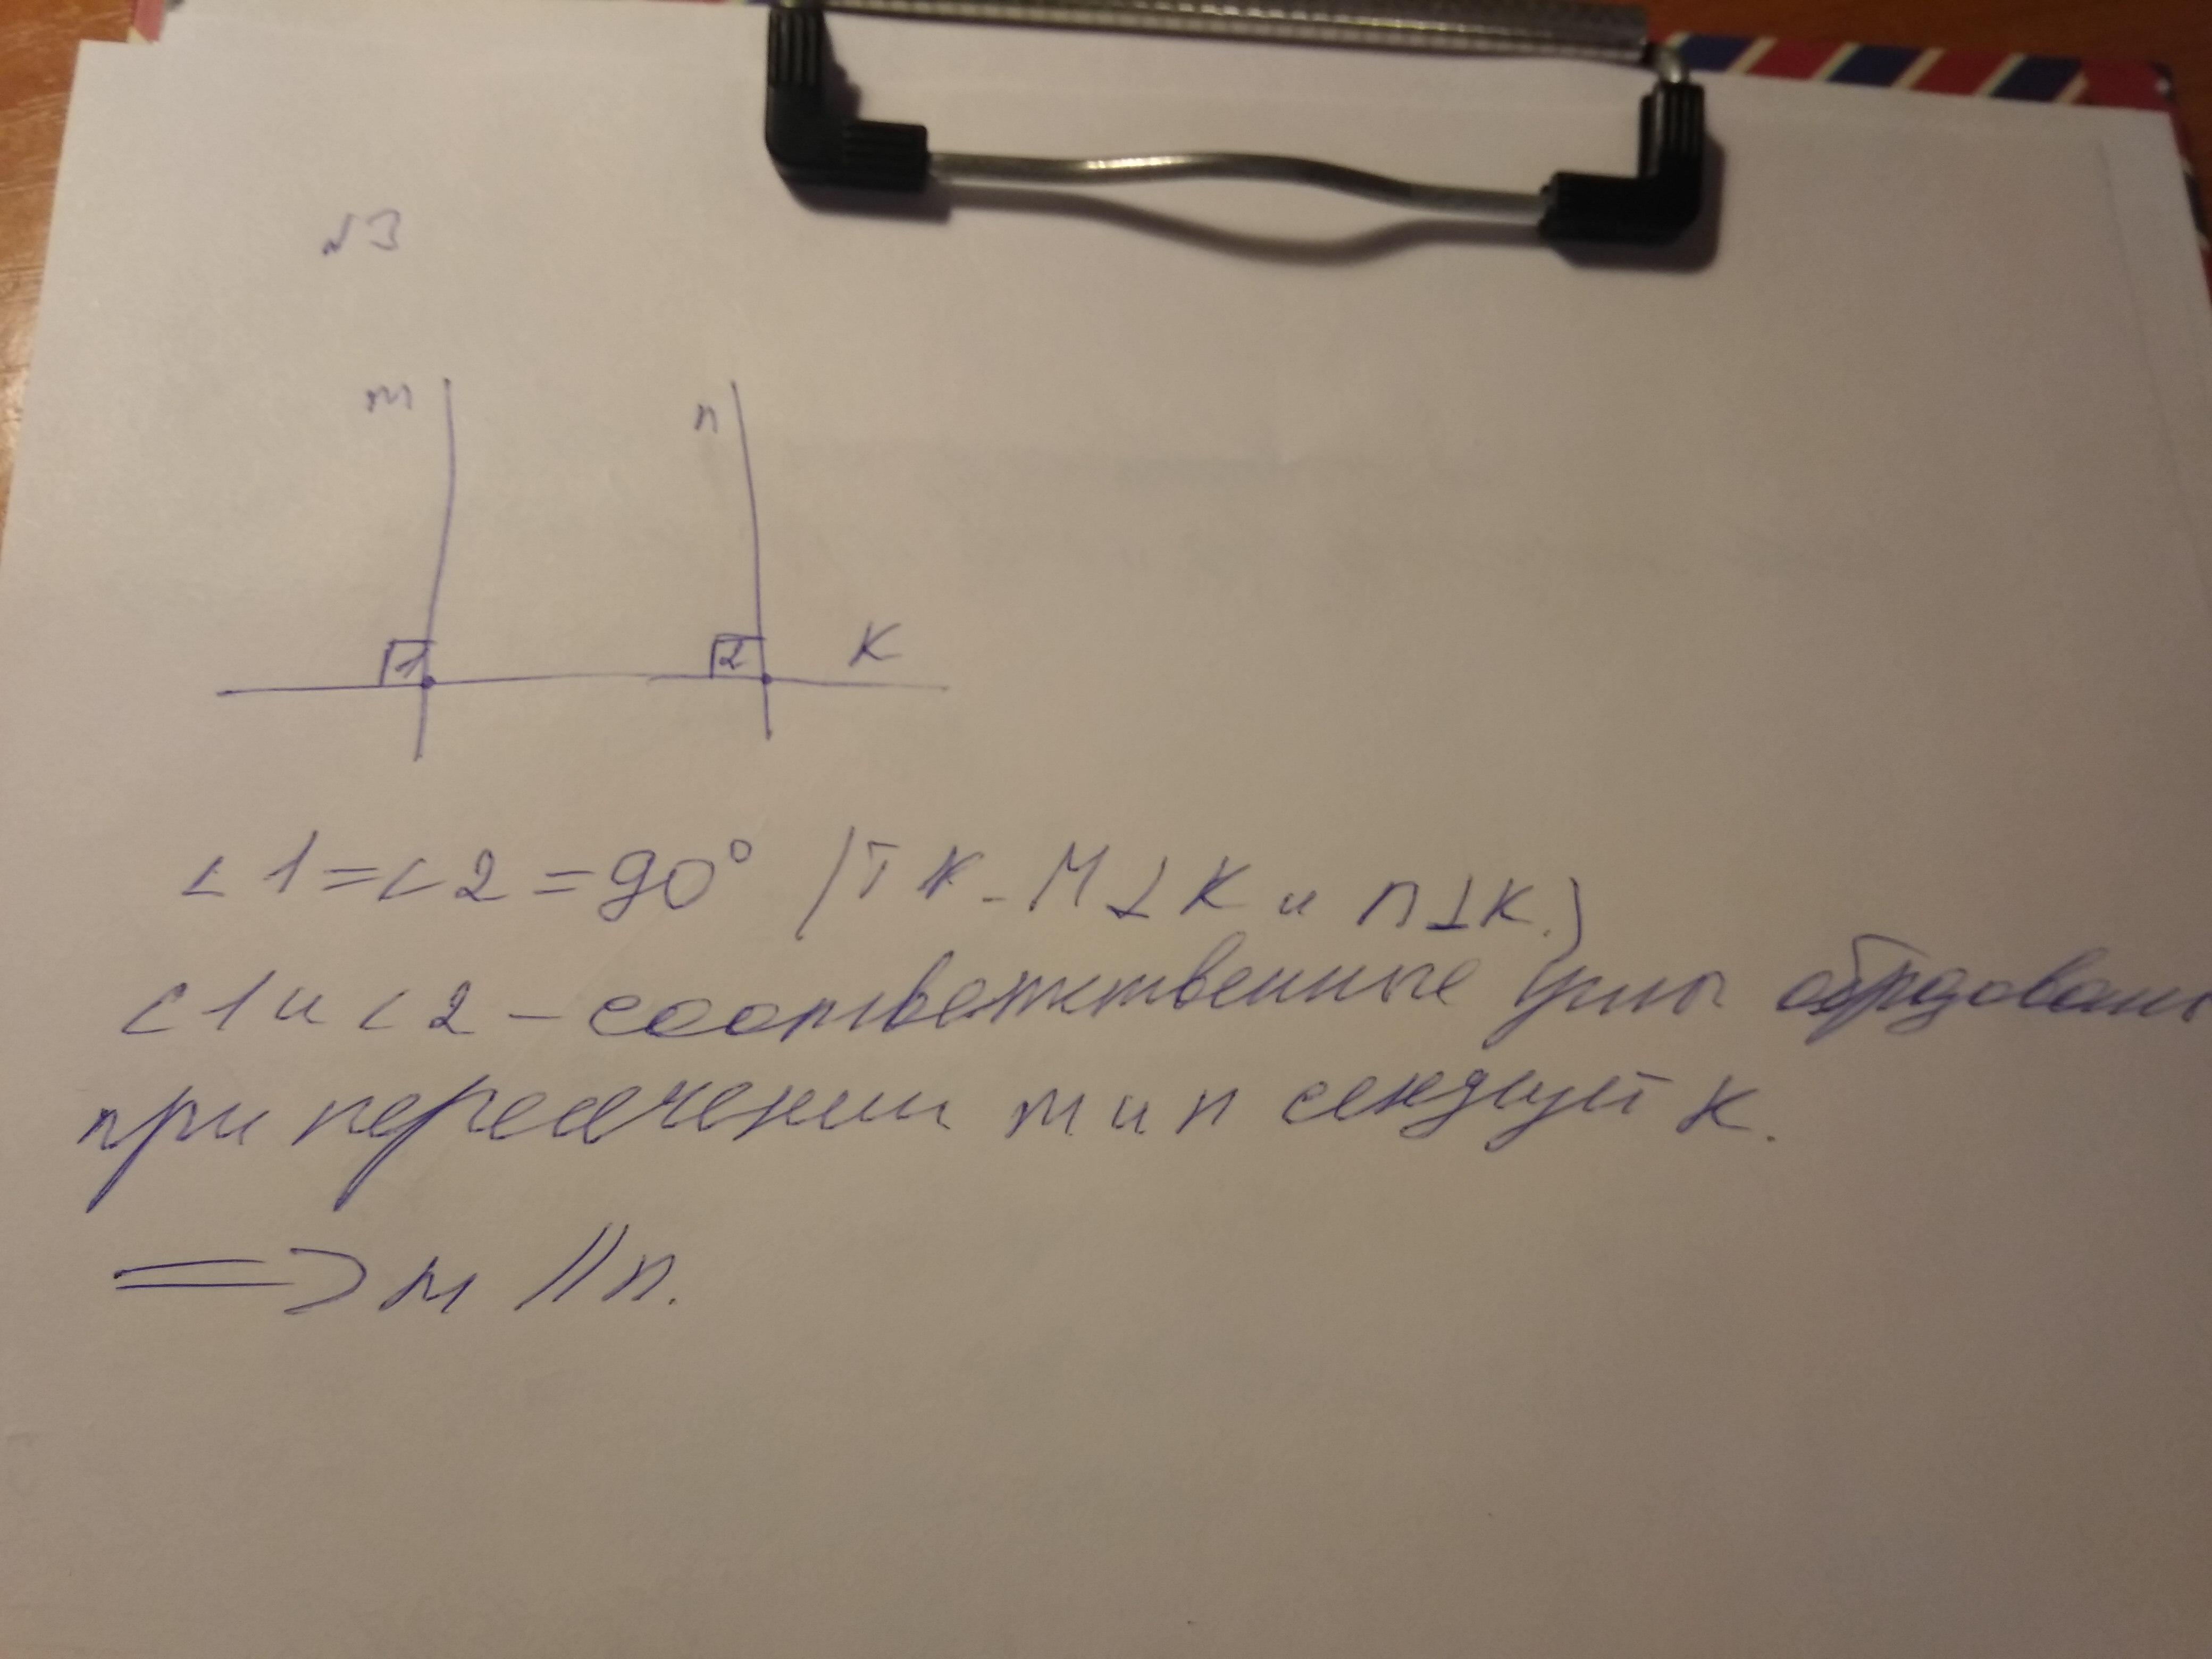 №3
m n
1 2 K
∠1=∠2=90° (т к. m⊥k и n⊥k.)
∠1 и ∠2 – соответственные углы образованы
при пересечении m и n секущей k.
=> m || n.